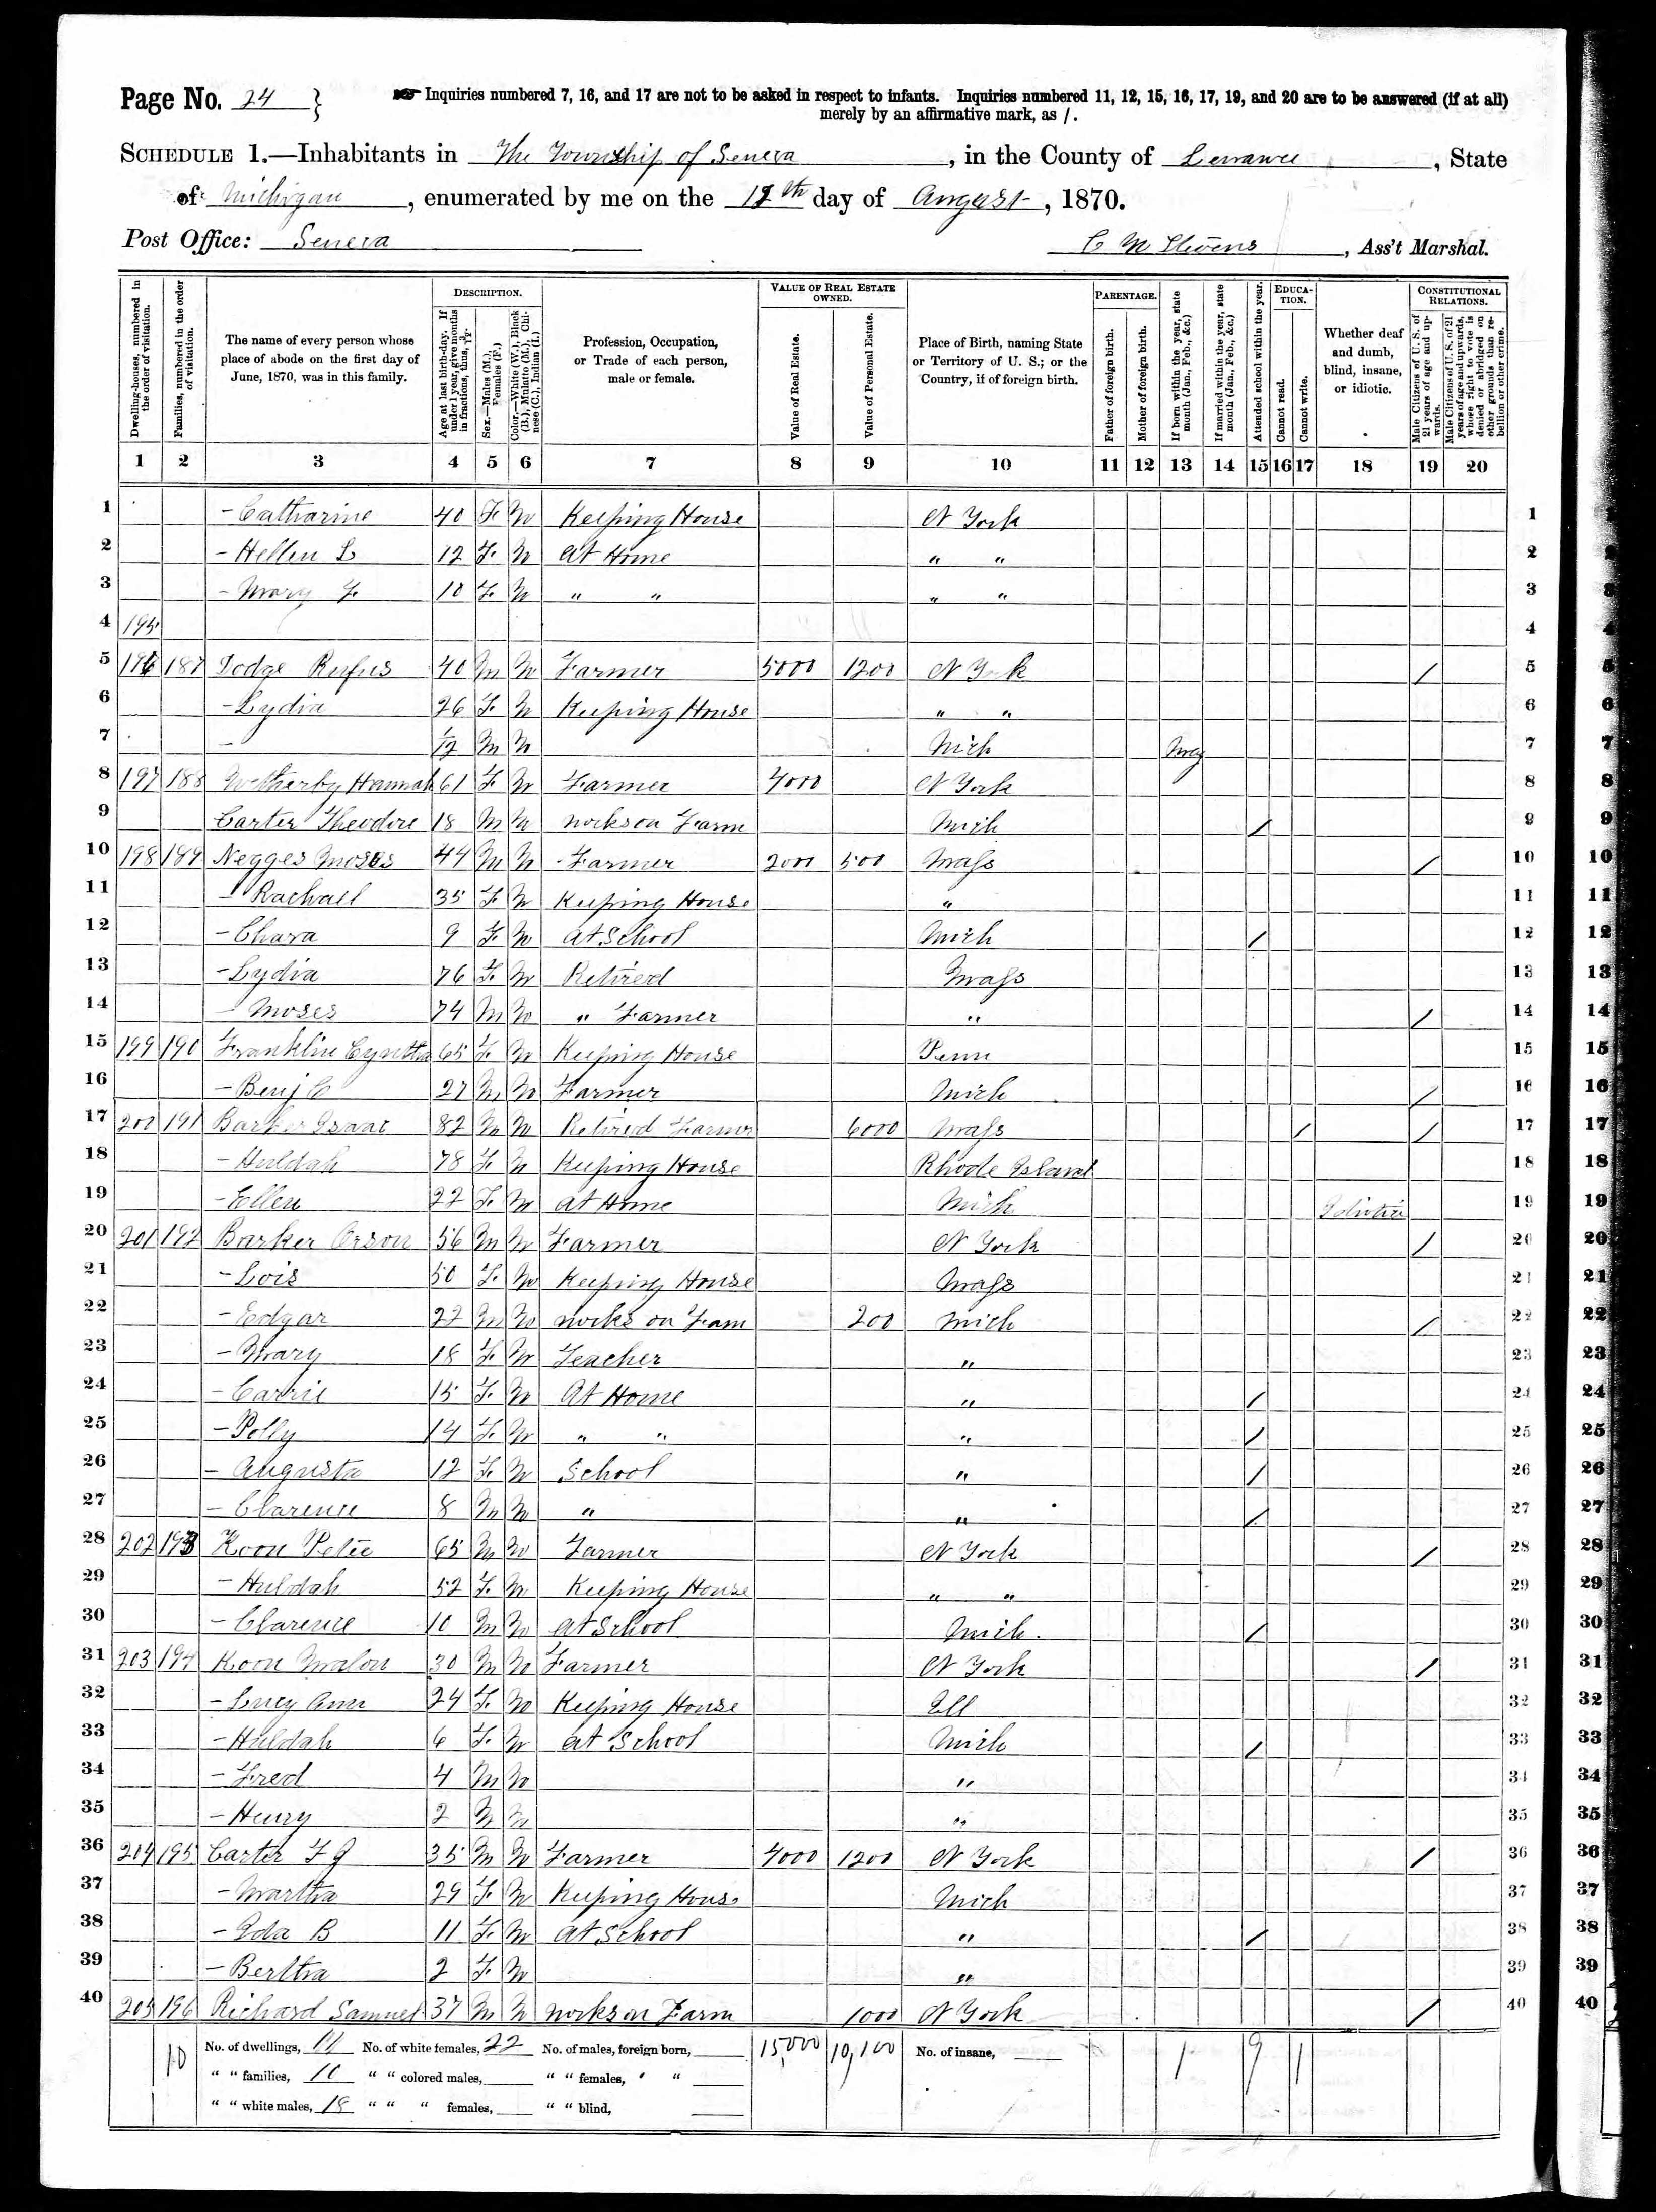 Page No. 24 } Inquiries numbered 7, 16, and 17 are not to be asked in respect to infants. Inquiries numbered 11, 12, 15, 16, 17, 19, and 20 are to be answered (if at all)
merely by an affirmative mark, as /.
SCHEDULE 1.—Inhabitants in The Township of Seneca, in the County of Lenawee, State
of Michigan, enumerated by me on the 12th day of August, 1870.
Post Office: Seneca C M Stevens, Ass't Marshal.
Dwelling-houses, numbered in the order of visitation.
Families, numbered in the order of visitation.
The name of every person whose place of abode on the first day of June, 1870, was in this family.
DESCRIPTION.
Age at last birth-day. If under 1 year, give months in fractions, thus, 3/12.
Sex.—Males (M.), Females (F.)
Color.—White (W.), Black (B.), Mulatto (M.), Chinese (C.), Indian (I.)
Profession, Occupation, or Trade of each person, male or female.
VALUE OF REAL ESTATE OWNED.
Value of Real Estate.
Value of Personal Estate.
Place of Birth, naming State or Territory of U. S.; or the Country, if of foreign birth.
PARENTAGE.
Father of foreign birth.
Mother of foreign birth.
If born within the year, state month (Jan., Feb., &c.)
If married within the year, state month (Jan., Feb., &c.)
Attended school within the year.
EDUCATION.
Cannot read.
Cannot write.
Whether deaf and dumb, blind, insane, or idiotic.
CONSTITUTIONAL RELATIONS.
Male Citizens of U. S. of 21 years of age and upwards.
Male Citizens of U. S. of 21 years of age and upwards, whose right to vote is denied or abridged on other grounds than rebellion or other crime.
1 2 3 4 5 6 7 8 9 10 11 12 13 14 15 16 17 18 19 20
1 – Catharine 40 F W Keeping House N York 1
2 – Hellen L 12 F W At Home " " 2
3 – Mary F 10 F W " " " " 3
4 195 4
5 196 187 Dodge Rufus 40 M W Farmer 5000 1200 N York / 5
6 – Lydia 26 F W Keeping House " " 6
7 – 1/12 M W Mich May 7
8 197 188 Wetherby Hannah 61 F W Farmer 4000 N York 8
9 Carter Theodore 18 M W works on Farm Mich / 9
10 198 189 Negges Moses 44 M W Farmer 2000 500 Mass / 10
11 – Rachall 35 F W Keeping House " 11
12 – Chara 9 F W At School Mich / 12
13 – Lydia 76 F W Retired Mass 13
14 – Moses 74 M W " Farmer " / 14
15 199 190 Franklin Cynthia 65 F W Keeping House Penn 15
16 – Benj C 27 M W Farmer Mich / 16
17 200 191 Barker Isaac 82 M W Retired Farmer 6000 Mass / / 17
18 – Huldah 78 F W Keeping House Rhode Island 18
19 – Ellen 22 F W At Home Mich 19
20 201 192 Barker Orson 56 M W Farmer N York / 20
21 – Lois 50 F W Keeping House Mass 21
22 – Edgar 22 M W works on Farm 200 Mich / 22
23 – Mary 18 F W Teacher " 23
24 – Carrie 15 F W At Home " / 24
25 – Polly 14 F W " " " / 25
26 – Augusta 12 F W School " / 26
27 – Clarence 8 M W " " / 27
28 202 193 Koon Peter 65 M W Farmer N York / 28
29 – Huldah 52 F W Keeping House " " 29
30 – Clarence 10 M W At School Mich. / 30
31 203 194 Koon Malon 30 M W Farmer N York / 31
32 – Lucy Ann 24 F W Keeping House Ill 32
33 – Huldah 6 F W At School Mich / 33
34 – Fred 4 M W " 34
35 – Henry 2 M W " 35
36 204 195 Carter F G 35 M W Farmer 4000 1200 N York / 36
37 – Martha 29 F W Keeping House Mich 37
38 – Ida B 11 F W At School " / 38
39 – Bertha 2 F W " 39
40 205 196 Richard Samuel 37 M W works on Farm 1000 N York / 40
10 No. of dwellings, 11 No. of white females, 22 No. of males, foreign born, 15,000 10,100 No. of insane, 1 9 1
" " families, 10 " " colored males, " " females, " "
" " white males, 18 " " " females, " " blind,